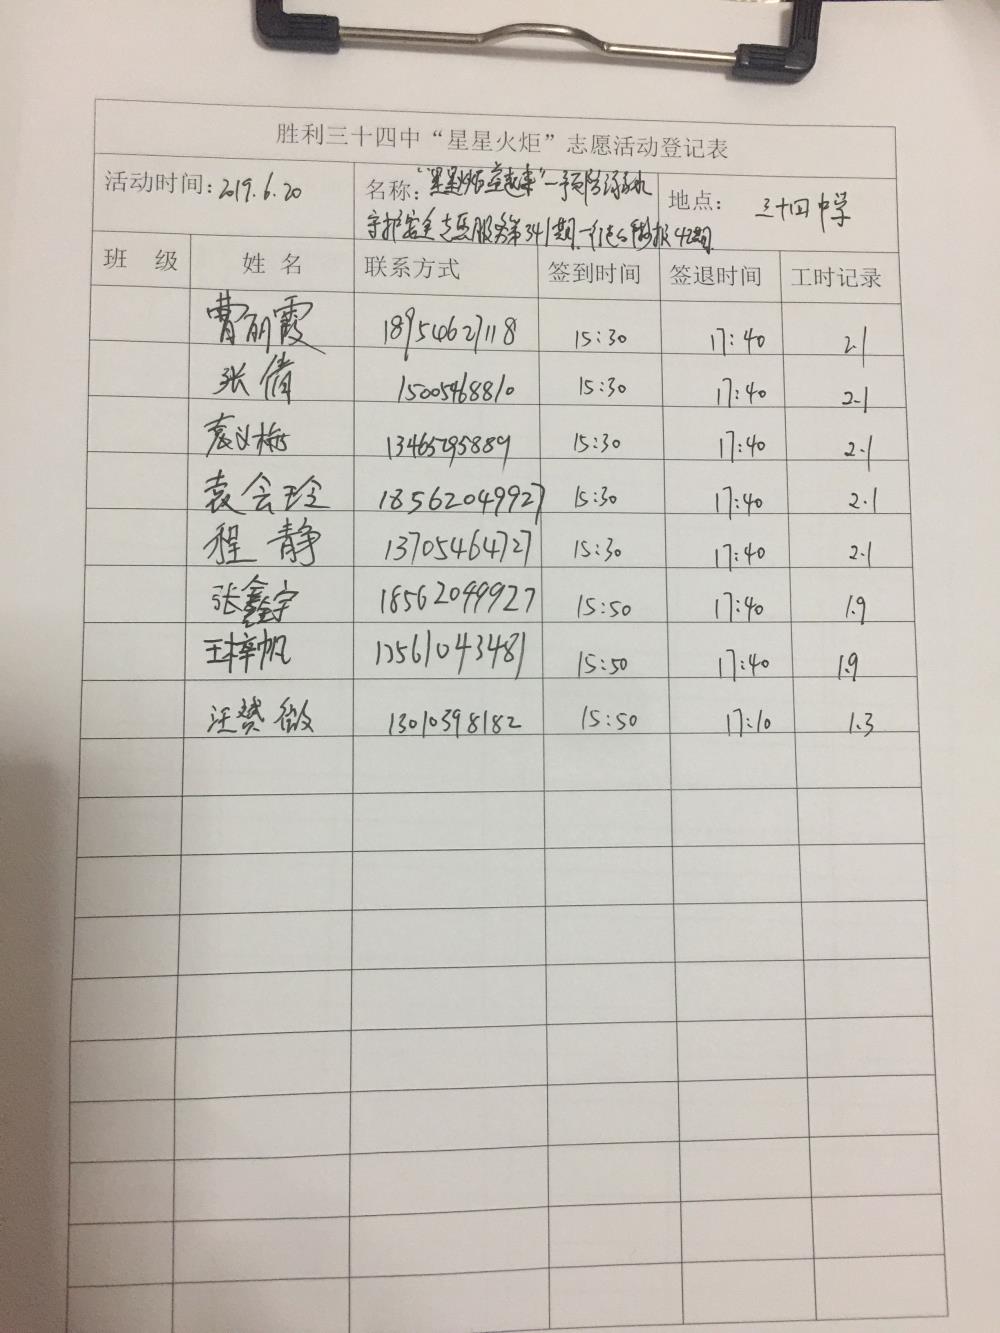 胜利三十四中“星星火炬”志愿活动登记表
活动时间：2019.6.20 名称： 地点： 三十四中学
守护安全志愿服务第341期
班 级 姓 名 联系方式 签到时间 签退时间 工时记录
曹丽霞 18954627118 15:30 17:40 2.1
张倩 15005468810 15:30 17:40 2.1
袁义梅 13465295889 15:30 17:40 2.1
袁会玲 18562049927 15:30 17:40 2.1
程静 13705464727 15:30 17:40 2.1
张鑫宇 18562049927 15:50 17:40 1.9
王梓帆 15561043481 15:50 17:40 1.9
汪赟微 13010398182 15:50 17:10 1.3